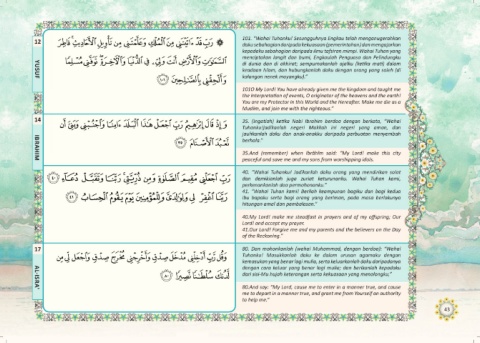 12
YUSUF
۞ رَبِّ قَدْ ءَاتَيْتَنِي مِنَ ٱلْمُلْكِ وَعَلَّمْتَنِي مِن تَأْوِيلِ ٱلْأَحَادِيثِ ۚ فَاطِرَ
ٱلسَّمَٰوَٰتِ وَٱلْأَرْضِ أَنتَ وَلِيِّۦ فِي ٱلدُّنْيَا وَٱلْءَاخِرَةِ ۖ تَوَفَّنِي مُسْلِمًا
وَأَلْحِقْنِي بِٱلصَّٰلِحِينَ ۝١٠١
101. "Wahai Tuhanku! Sesungguhnya Engkau telah mengurniakan
daku sebahagian daripada kekuasaan (pemerintahan) dan mengajarkan
kepadaku sebahagian daripada ilmu tafsiran mimpi. Wahai Tuhan yang
menciptakan langit dan bumi, Engkaulah Penguasa dan Pelindungku
di dunia dan di akhirat; sempurnakanlah ajalku (ketika mati) dalam
keadaan Islam, dan hubungkanlah daku dengan orang yang soleh (di
kalangan nenek moyangku)."
101O My Lord! You have already given me the kingdom and taught me
the interpretation of events, O originator of the heavens and the earth!
You are my Protector in this World and the Hereafter. Make me die as a
Muslim, and join me with the righteous."
14
IBRAHIM
وَإِذْ قَالَ إِبْرَٰهِيمُ رَبِّ ٱجْعَلْ هَٰذَا ٱلْبَلَدَ ءَامِنًا وَٱجْنُبْنِي وَبَنِيَّ أَن
نَّعْبُدَ ٱلْأَصْنَامَ ۝٣٥
35. (Ingatlah) ketika Nabi Ibrahim berdoa dengan berkata, "Wahai
Tuhanku!jadikanlah negeri Makkah ini negeri yang aman, dan
jauhkanlah daku dan anak-anakku daripada perbuatan menyembah
berhala."
35.And (remember) when
My Lord! make this city
peaceful and save me and my sons from worshipping idols.
رَبِّ ٱجْعَلْنِي مُقِيمَ ٱلصَّلَوٰةِ وَمِن ذُرِّيَّتِي ۚ رَبَّنَا وَتَقَبَّلْ دُعَآءِ ۝٤٠
رَبَّنَا ٱغْفِرْ لِي وَلِوَٰلِدَيَّ وَلِلْمُؤْمِنِينَ يَوْمَ يَقُومُ ٱلْحِسَابُ ۝٤١
40. "Wahai Tuhanku! Jadikanlah daku orang yang mendirikan solat
dan demikianlah juga zuriat keturunanku. Wahai Tuhan kami,
perkenankanlah doa permohonanku.
41. "Wahai Tuhan kami! Berilah keampunan bagiku dan bagi kedua
ibu bapaku serta bagi orang yang beriman, pada masa berlakunya
hitungan amal dan pembalasan."
40.My Lord! make me steadfast in prayers and of my offspring, Our
Lord! and accept my prayer.
41.Our Lord! Forgive me and my parents and the believers on the Day
of the Reckoning."
17
AL ISRA'
وَقُل رَّبِّ أَدْخِلْنِي مُدْخَلَ صِدْقٍ وَأَخْرِجْنِي مُخْرَجَ صِدْقٍ وَٱجْعَل لِّي مِن
لَّدُنكَ سُلْطَٰنًا نَّصِيرًا ۝٨٠
80. Dan mohonkanlah (wahai Muhammad, dengan berdoa): "Wahai
Tuhanku! Masukkanlah daku ke dalam urusan agamaku dengan
kemasukan yang benar lagi mulia, serta keluarkanlah daku daripadanya
dengan cara keluar yang benar lagi mulia; dan berikanlah kepadaku
dari sisi-Mu hujah keterangan serta kekuasaan yang menolongku."
80.And say: "My Lord, cause me to enter in a true manner, and cause
me to depart in a manner true, and grant me from Yourself an authority
to help me."
43